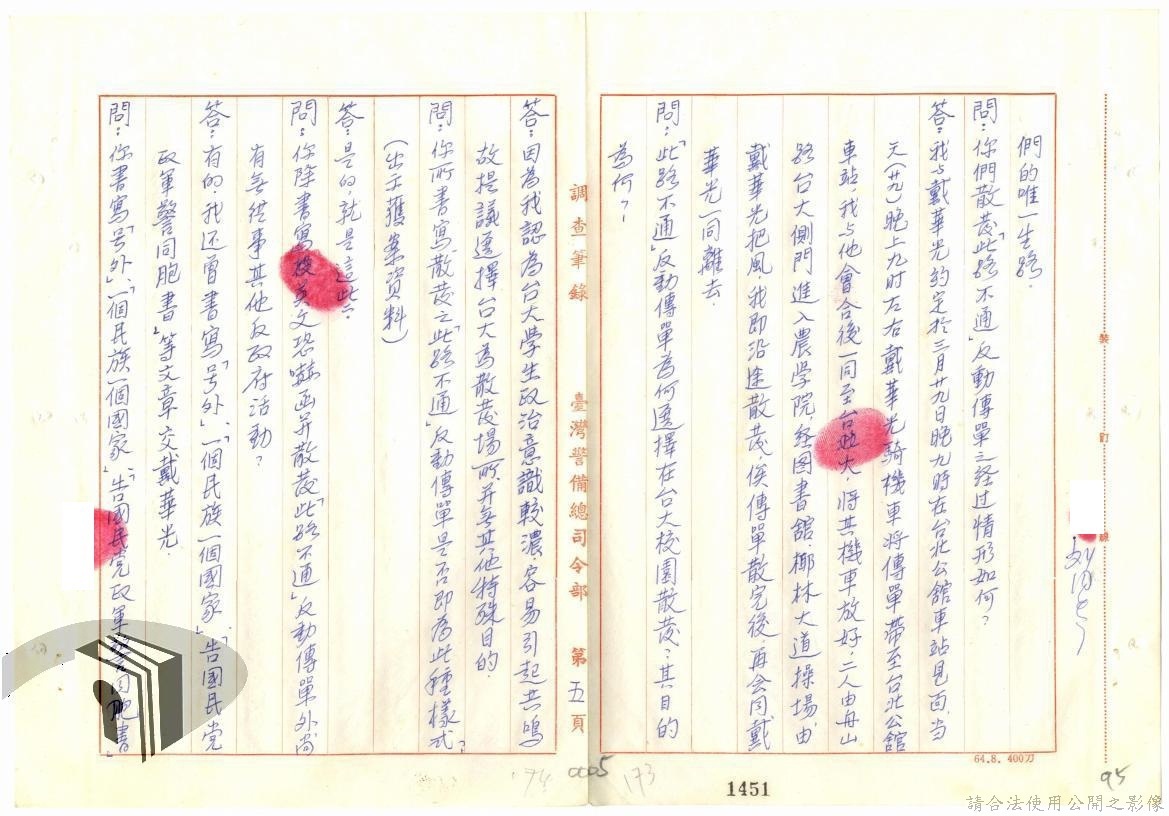 們的唯一生路．
問：你們散发「此路不通」反動傳單之経过情形如何？
答：我与戴華光約定於三月廿九日晚九時在台北公舘車站見面，当
天（廿九）晚上九时左右戴華光騎機車将傳單帶至台北公舘
車站，我与他會合後一同至台大，将其機車放好，二人由舟山
路台大側門進入農学院，経图書舘、椰林大道操場，由
戴華光把風，我即沿途散发，俟傳單散完後，再会同戴
華光一同離去．
問：「此路不通」反動傳單為何選擇在台大校園散发？其目的
為何？
調查筆錄
臺灣警備總司令部
第五頁
答：因為我認為台大学生政治意識較濃，容易引起共鳴
故提議選擇台大為散发場所，并無其他特殊目的．
問：你所書寫散发之「此路不通」反動傳單是否即為此種樣式？
（出示獲案資料）
答：是的，就是這些．
問：你除書寫英文恐嚇函并散发「此路不通」反動傳單外，尚
有無從事其他反政府活動？
答：有的，我还曾書寫「号外」、「一個民族一個國家」、「告國民党
政軍警同胞書」等文章交戴華光．
問：你書寫「号外」、「一個民族一個國家」、「告國民党政軍警同胞書」
裝
訂
線
64.8. 400刀
95
174
0005
173
1451
請合法使用公開之影像